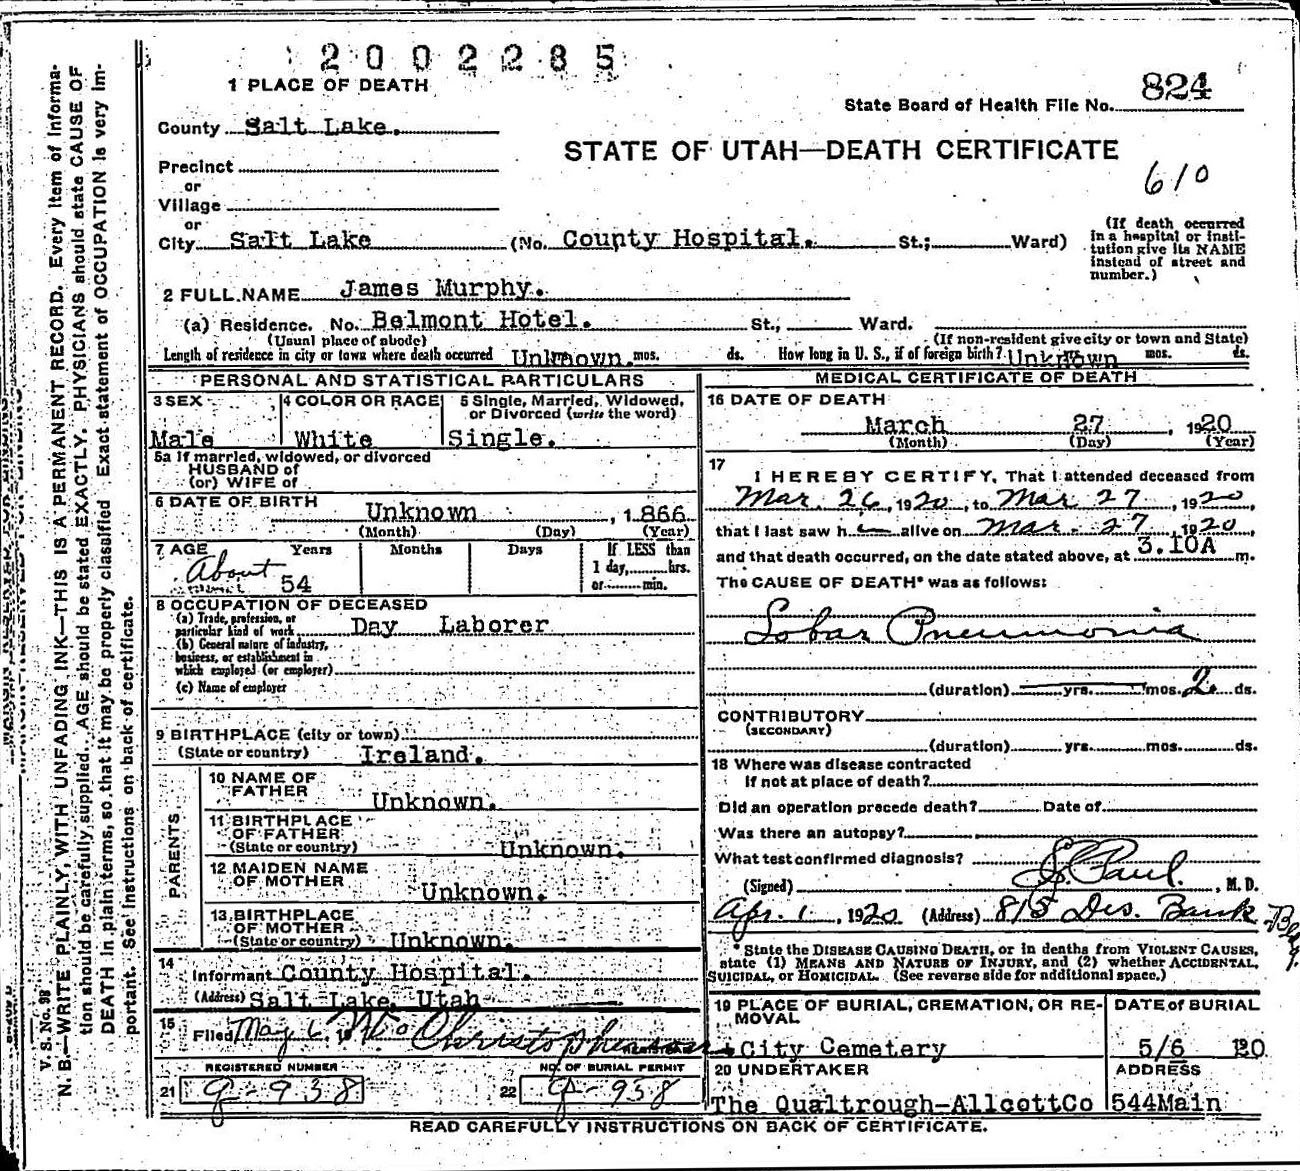 2002285
1 PLACE OF DEATH
State Board of Health File No. 824
County Salt Lake.
STATE OF UTAH—DEATH CERTIFICATE
610
Precinct
or
Village
or
City Salt Lake (No. County Hospital. St.; Ward)
(If death occurred
in a hospital or insti-
tution give its NAME
instead of street and
number.)
2 FULL NAME James Murphy.
(a) Residence. No. Belmont Hotel. St., Ward.
(Usual place of abode) (If non-resident give city or town and State)
Length of residence in city or town where death occurred Unknown. mos. ds. How long in U. S., if of foreign birth? Unknown mos. ds.
PERSONAL AND STATISTICAL PARTICULARS
3 SEX
Male
4 COLOR OR RACE
White
5 Single, Married, Widowed,
or Divorced (write the word)
Single.
5a If married, widowed, or divorced
HUSBAND of
(or) WIFE of
6 DATE OF BIRTH
Unknown , 1866
(Month) (Day) (Year)
7 AGE Years Months Days If LESS than
1 day, hrs.
or min.
About
54
8 OCCUPATION OF DECEASED
(a) Trade, profession, or
particular kind of work Day Laborer
(b) General nature of industry,
business, or establishment in
which employed (or employer)
(c) Name of employer
9 BIRTHPLACE (city or town)
(State or country) Ireland.
PARENTS
10 NAME OF
FATHER
Unknown.
11 BIRTHPLACE
OF FATHER
(State or country) Unknown.
12 MAIDEN NAME
OF MOTHER
Unknown.
13 BIRTHPLACE
OF MOTHER
(State or country) Unknown.
14
Informant County Hospital.
(Address) Salt Lake, Utah
15
Filed May 6, 19 Christopherson
REGISTRAR
REGISTERED NUMBER
21 g-938
NO. OF BURIAL PERMIT
22 g-958
MEDICAL CERTIFICATE OF DEATH
16 DATE OF DEATH
March 27 , 1920
(Month) (Day) (Year)
17
I HEREBY CERTIFY, That I attended deceased from
Mar. 26, 1920, to Mar 27, 1920
that I last saw h alive on Mar. 27 1920
and that death occurred, on the date stated above, at 3.10A m.
The CAUSE OF DEATH* was as follows:
Lobar Pneumonia
(duration) yrs. mos. 2. ds.
CONTRIBUTORY
(SECONDARY)
(duration) yrs. mos. ds.
18 Where was disease contracted
if not at place of death?
Did an operation precede death? Date of
Was there an autopsy?
What test confirmed diagnosis?
(Signed) Paul. , M. D.
Apr. 1, 1920 (Address) 815 Des. Bank
*State the DISEASE CAUSING DEATH, or in deaths from VIOLENT CAUSES,
state (1) MEANS AND NATURE OF INJURY, and (2) whether ACCIDENTAL,
SUICIDAL, or HOMICIDAL. (See reverse side for additional space.)
19 PLACE OF BURIAL, CREMATION, OR RE-
MOVAL
City Cemetery
DATE of BURIAL
5/6 1920
20 UNDERTAKER
The Qualtrough-AllcottCo
ADDRESS
544Main
READ CAREFULLY INSTRUCTIONS ON BACK OF CERTIFICATE.
V. S. No. 98
N. B.—WRITE PLAINLY, WITH UNFADING INK—THIS IS A PERMANENT RECORD. Every item of informa-
tion should be carefully supplied. AGE should be stated EXACTLY. PHYSICIANS should state CAUSE OF
DEATH in plain terms, so that it may be properly classified. Exact statement of OCCUPATION is very im-
portant. See instructions on back of certificate.